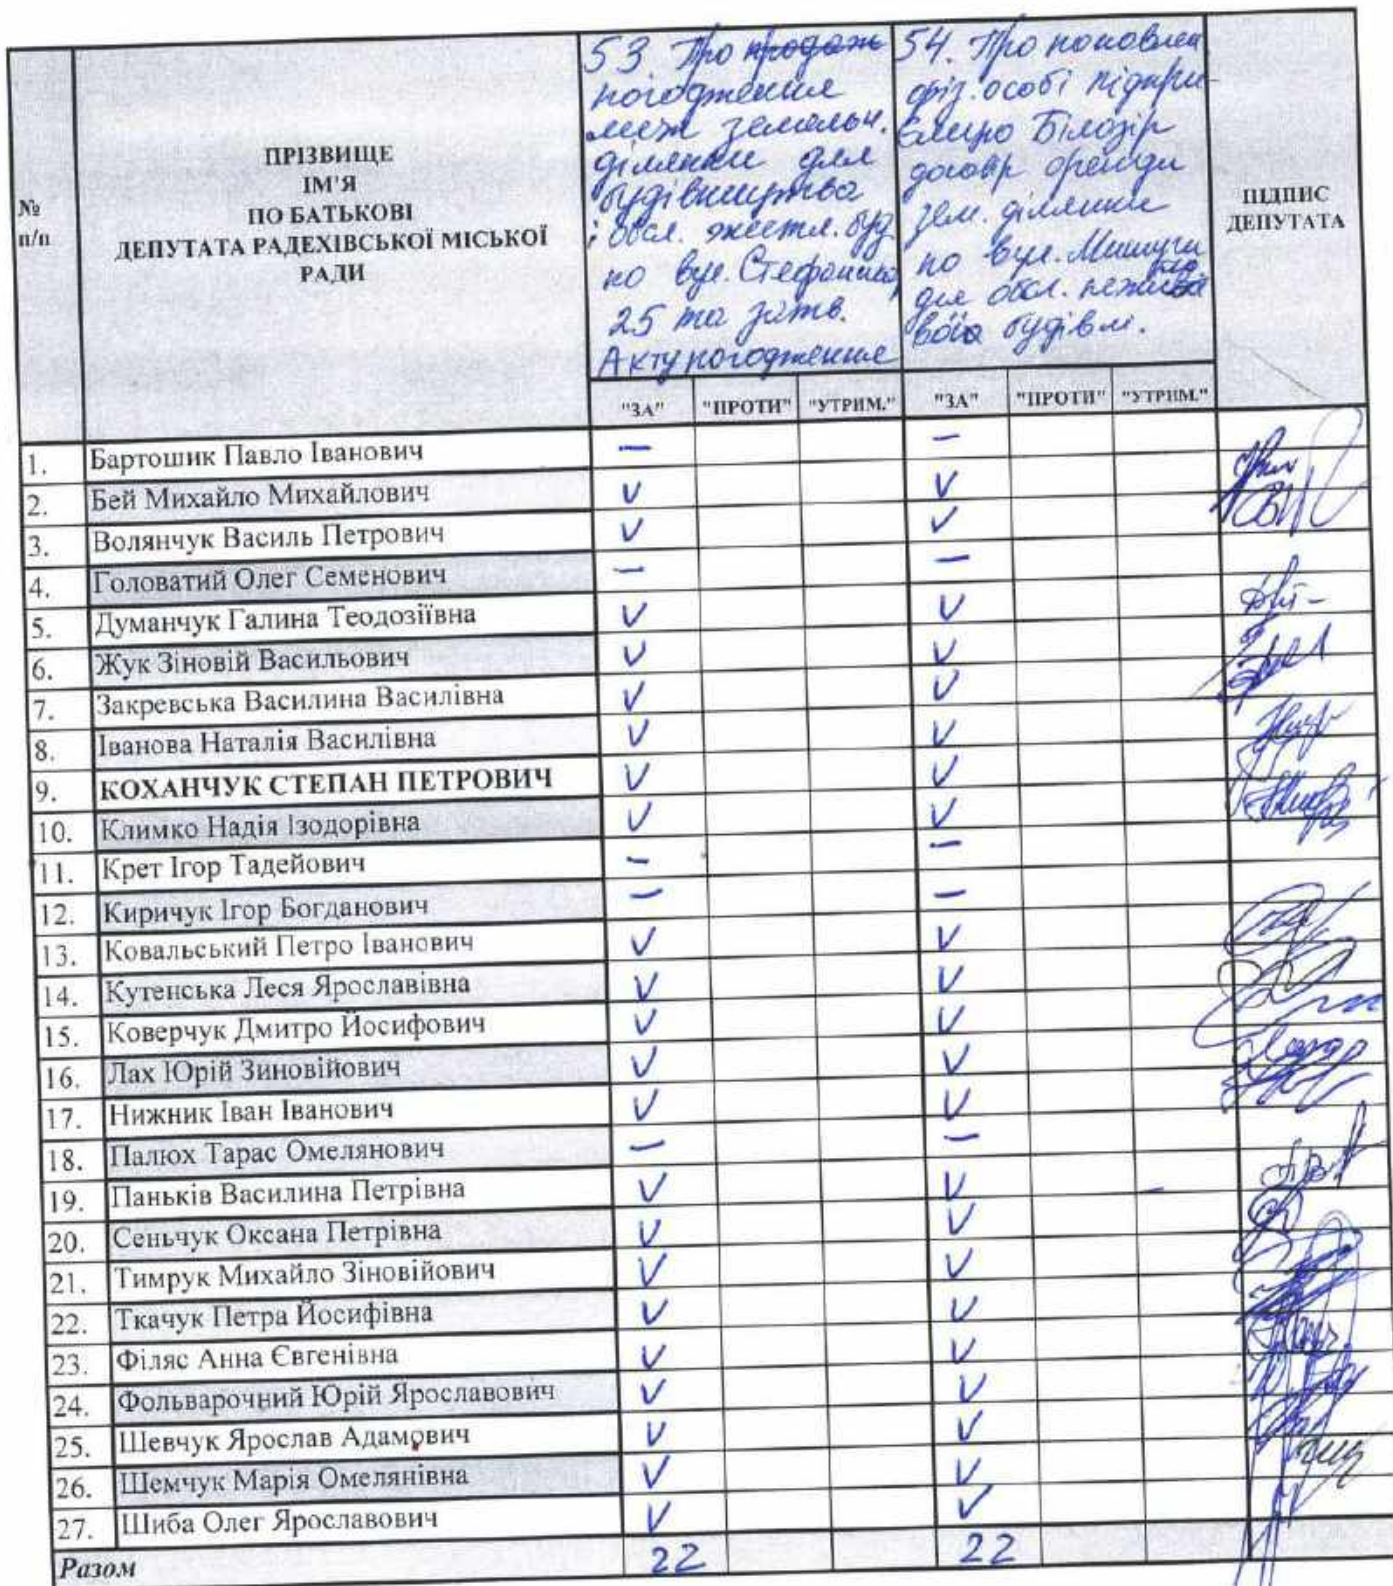 №
п/п
ПРІЗВИЩЕ
ІМ'Я
ПО БАТЬКОВІ
ДЕПУТАТА РАДЕХІВСЬКОЇ МІСЬКОЇ
РАДИ
53. Про продаж
погодження
меж земельн.
ділянки для
будівництва
і обсл. житл. буд
по вул. Стефаника,
25 та затв.
Акту погодження
54. Про поновлен
фіз. особі підпри
ємцю Білозір
договр оренди
зем. ділянки
по вул. Мишуги
для обсл.
будівлі.
ПІДПИС
ДЕПУТАТА
"ЗА" "ПРОТИ" "УТРИМ." "ЗА" "ПРОТИ" "УТРИМ."
1. Бартошик Павло Іванович — —
2. Бей Михайло Михайлович V V
3. Волянчук Василь Петрович V V
4. Головатий Олег Семенович — —
5. Думанчук Галина Теодозіївна V V
6. Жук Зіновій Васильович V V
7. Закревська Василина Василівна V V
8. Іванова Наталія Василівна V V
9. КОХАНЧУК СТЕПАН ПЕТРОВИЧ V V
10. Климко Надія Ізодорівна V V
11. Крет Ігор Тадейович — —
12. Киричук Ігор Богданович — —
13. Ковальський Петро Іванович V V
14. Кутенська Леся Ярославівна V V
15. Коверчук Дмитро Йосифович V V
16. Лах Юрій Зиновійович V V
17. Нижник Іван Іванович V V
18. Палюх Тарас Омелянович — —
19. Паньків Василина Петрівна V V
20. Сеньчук Оксана Петрівна V V
21. Тимрук Михайло Зіновійович V V
22. Ткачук Петра Йосифівна V V
23. Філяс Анна Євгенівна V V
24. Фольварочний Юрій Ярославович V V
25. Шевчук Ярослав Адамович V V
26. Шемчук Марія Омелянівна V V
27. Шиба Олег Ярославович V V
Разом 22 22